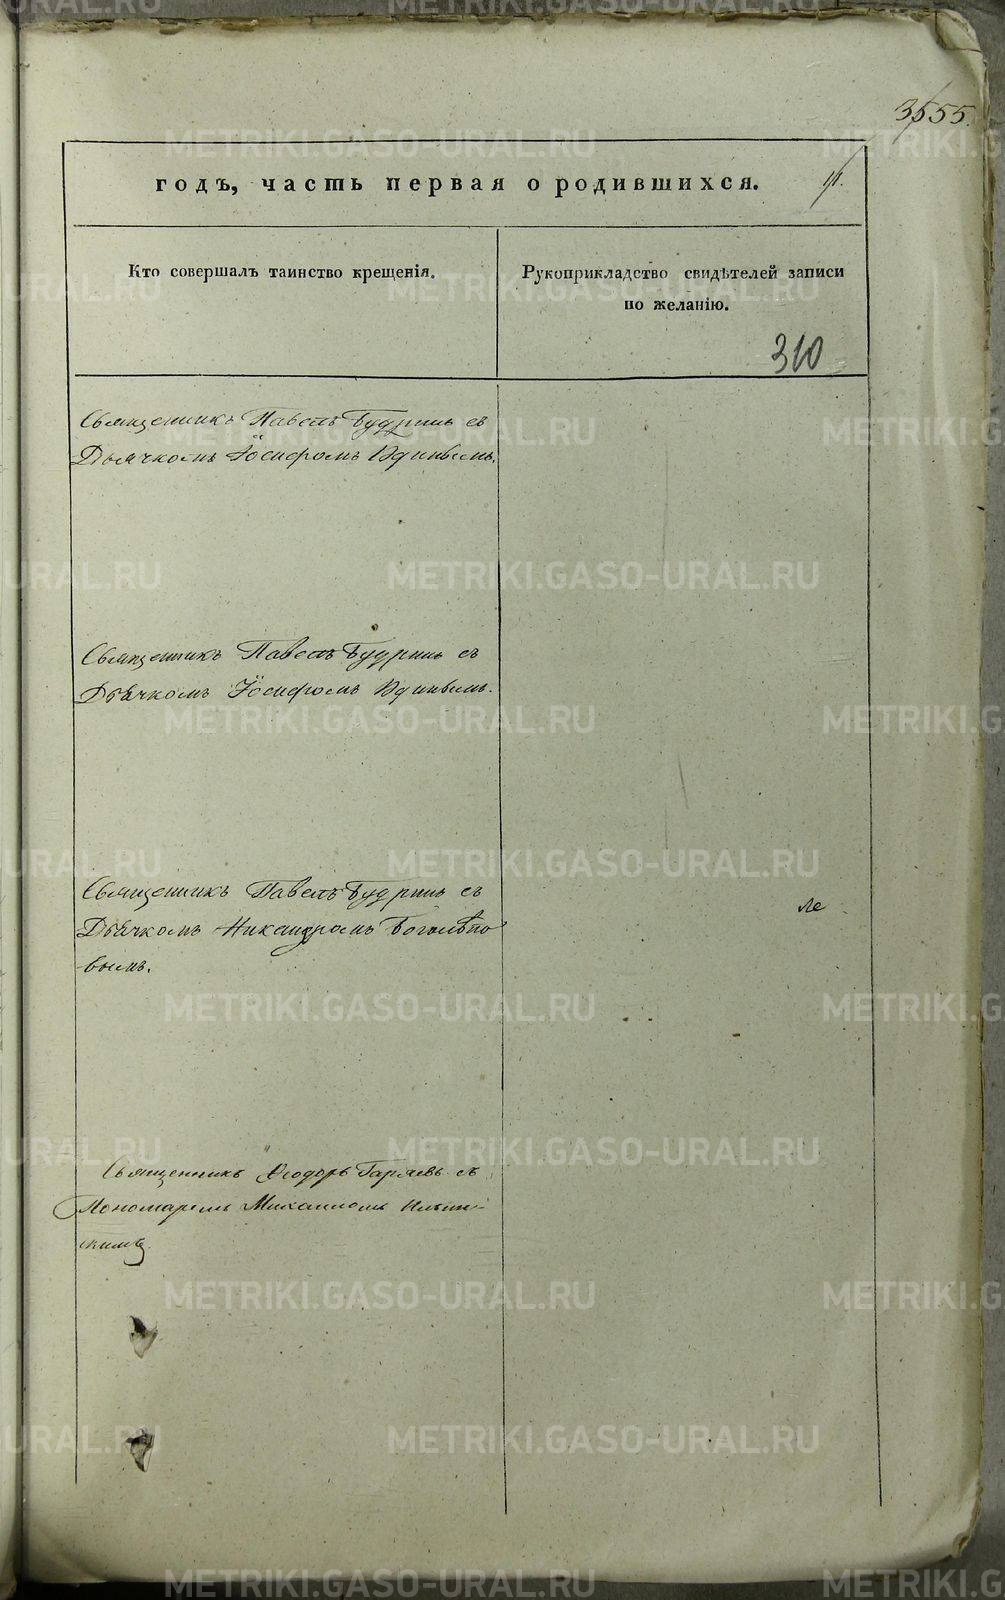 3555.
годъ, часть первая о родившихся.
Кто совершалъ таинство крещенія.
Рукоприкладство свидѣтелей записи
по желанію.
310
Священникъ Павелъ Будринъ съ
Дьячкомъ Іосифомъ
Священникъ Павелъ Будринъ съ
Дьячкомъ Іосифомъ
Священникъ Павелъ Будринъ съ
Дьячкомъ Никандромъ Боголѣпо
вымъ.
Священникъ Ѳеодоръ Гаряевъ съ
Пономаремъ Михаиломъ Ильин-
скимъ.
METRIKI.GASO-URAL.RU